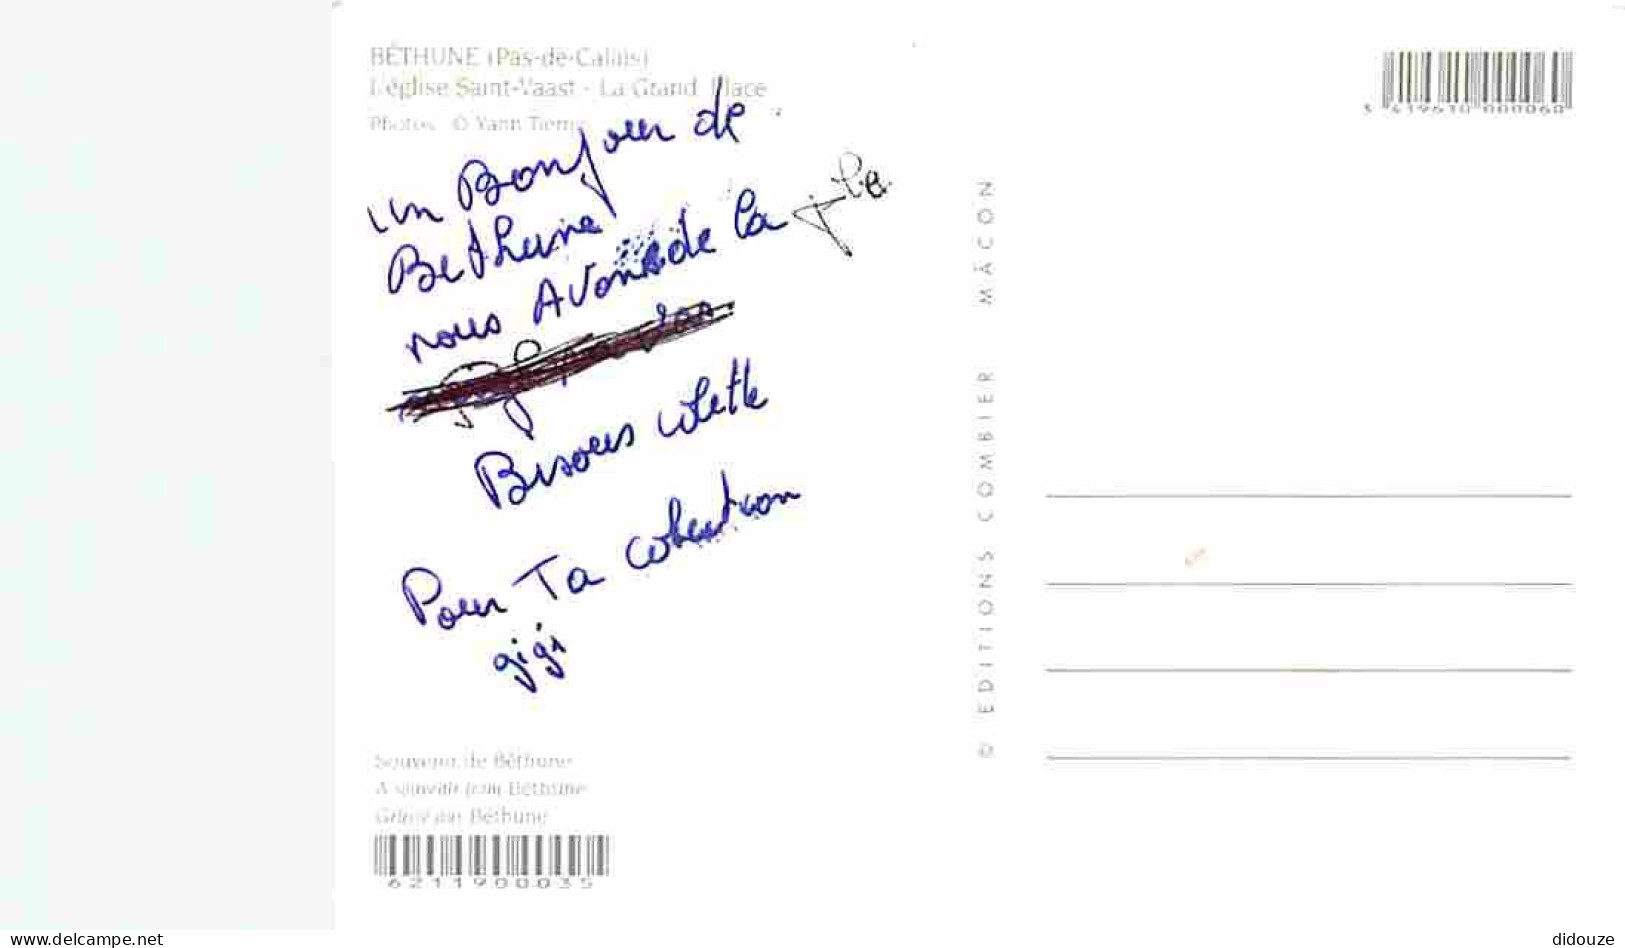 BÉTHUNE (Pas-de-Calais)
L'église Saint-Vaast - La Grand Place
Photos © Yann
un Bonjour de
Bethune
nous Avons de la
Bisous colette
Pour Ta colection
gigi
Souvenir de Béthune
A souvenir from Béthune
Grüsse aus Béthune
6211900035
© EDITIONS COMBIER MÂCON
3 419610 000060
www.delcampe.net
didouze